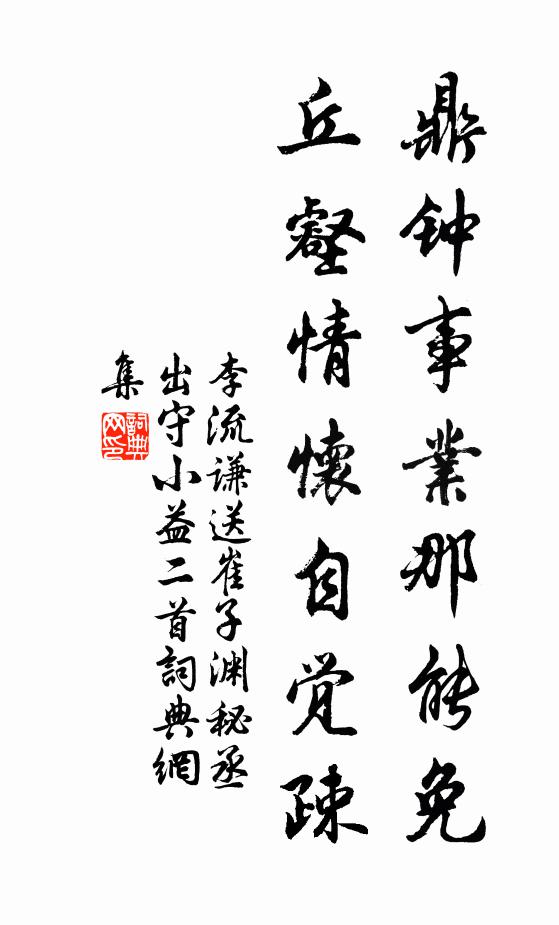 鼎钟事業那能免
丘壑情懷自覚疎
李流謙送崔子渊秘丞
出守小益二首詞典網
集
詞典网印